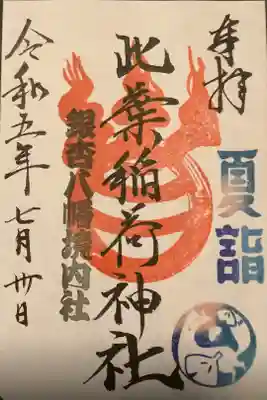 奉拝
夏詣
此葉稲荷神社
銀杏八幡境内社
令和五年七月廿日